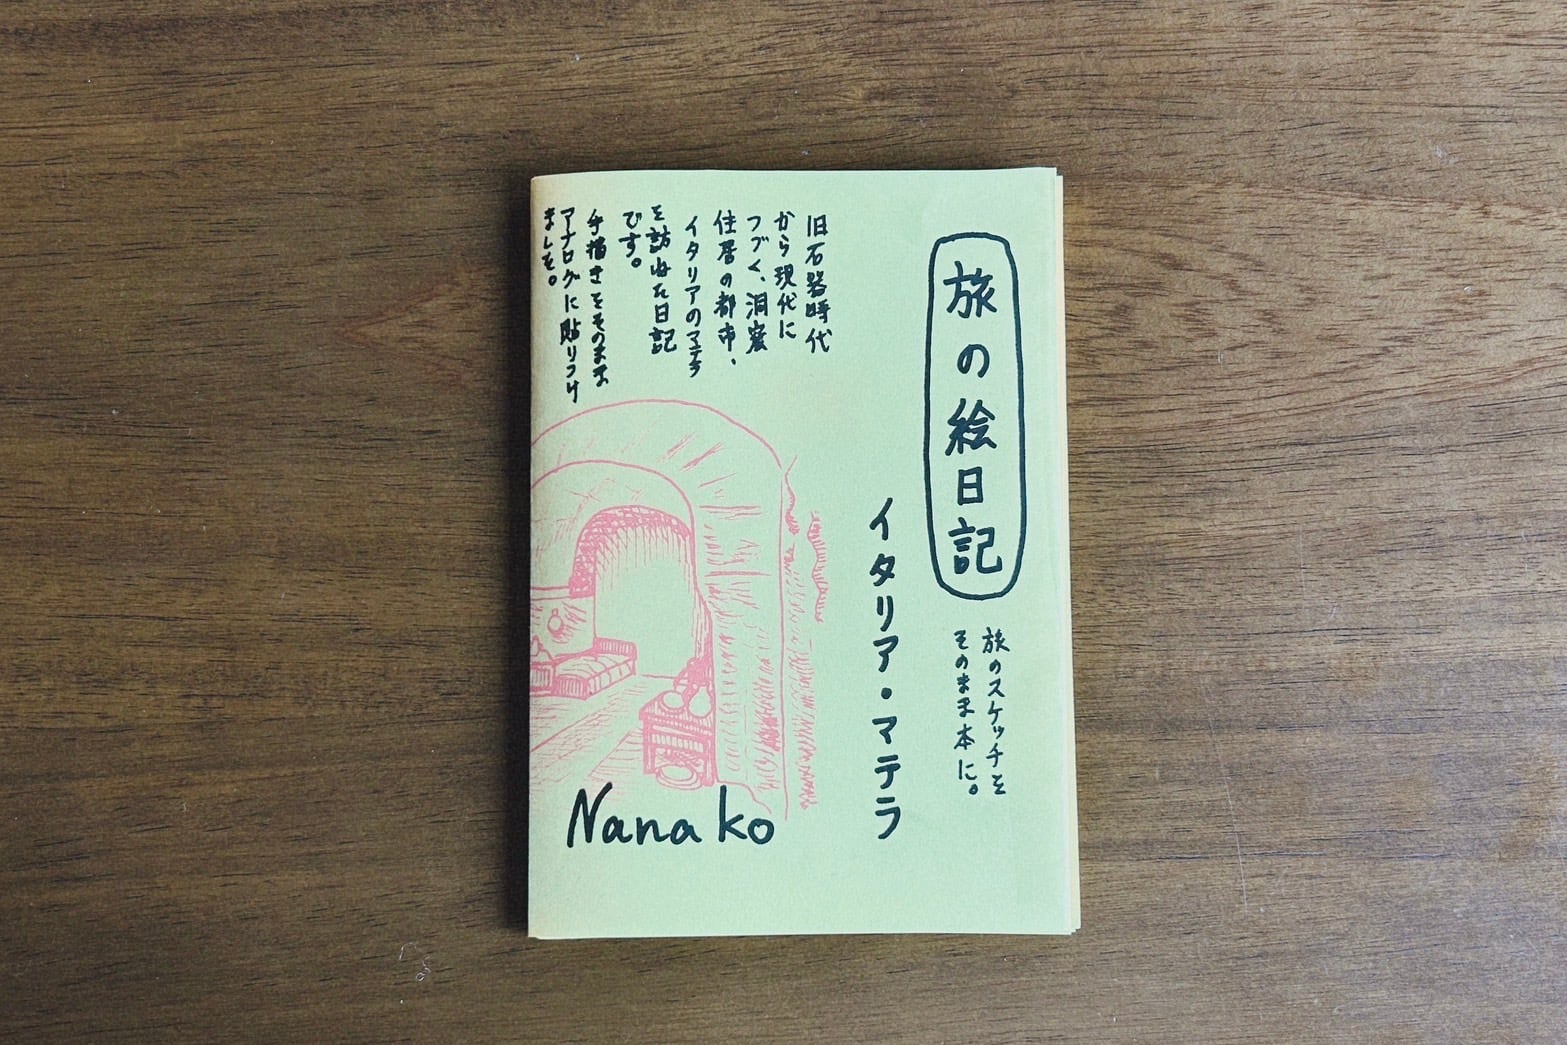 旅の絵日記
旅のスケッチを
そのまま本に。
イタリア・マテラ
旧石器時代
から現代に
つづく、洞窟
住居の都市、
イタリアのマテラ
を訪ねた日記
です。
手描きをそのまま
アナログに貼りつけ
ました。
Nanako